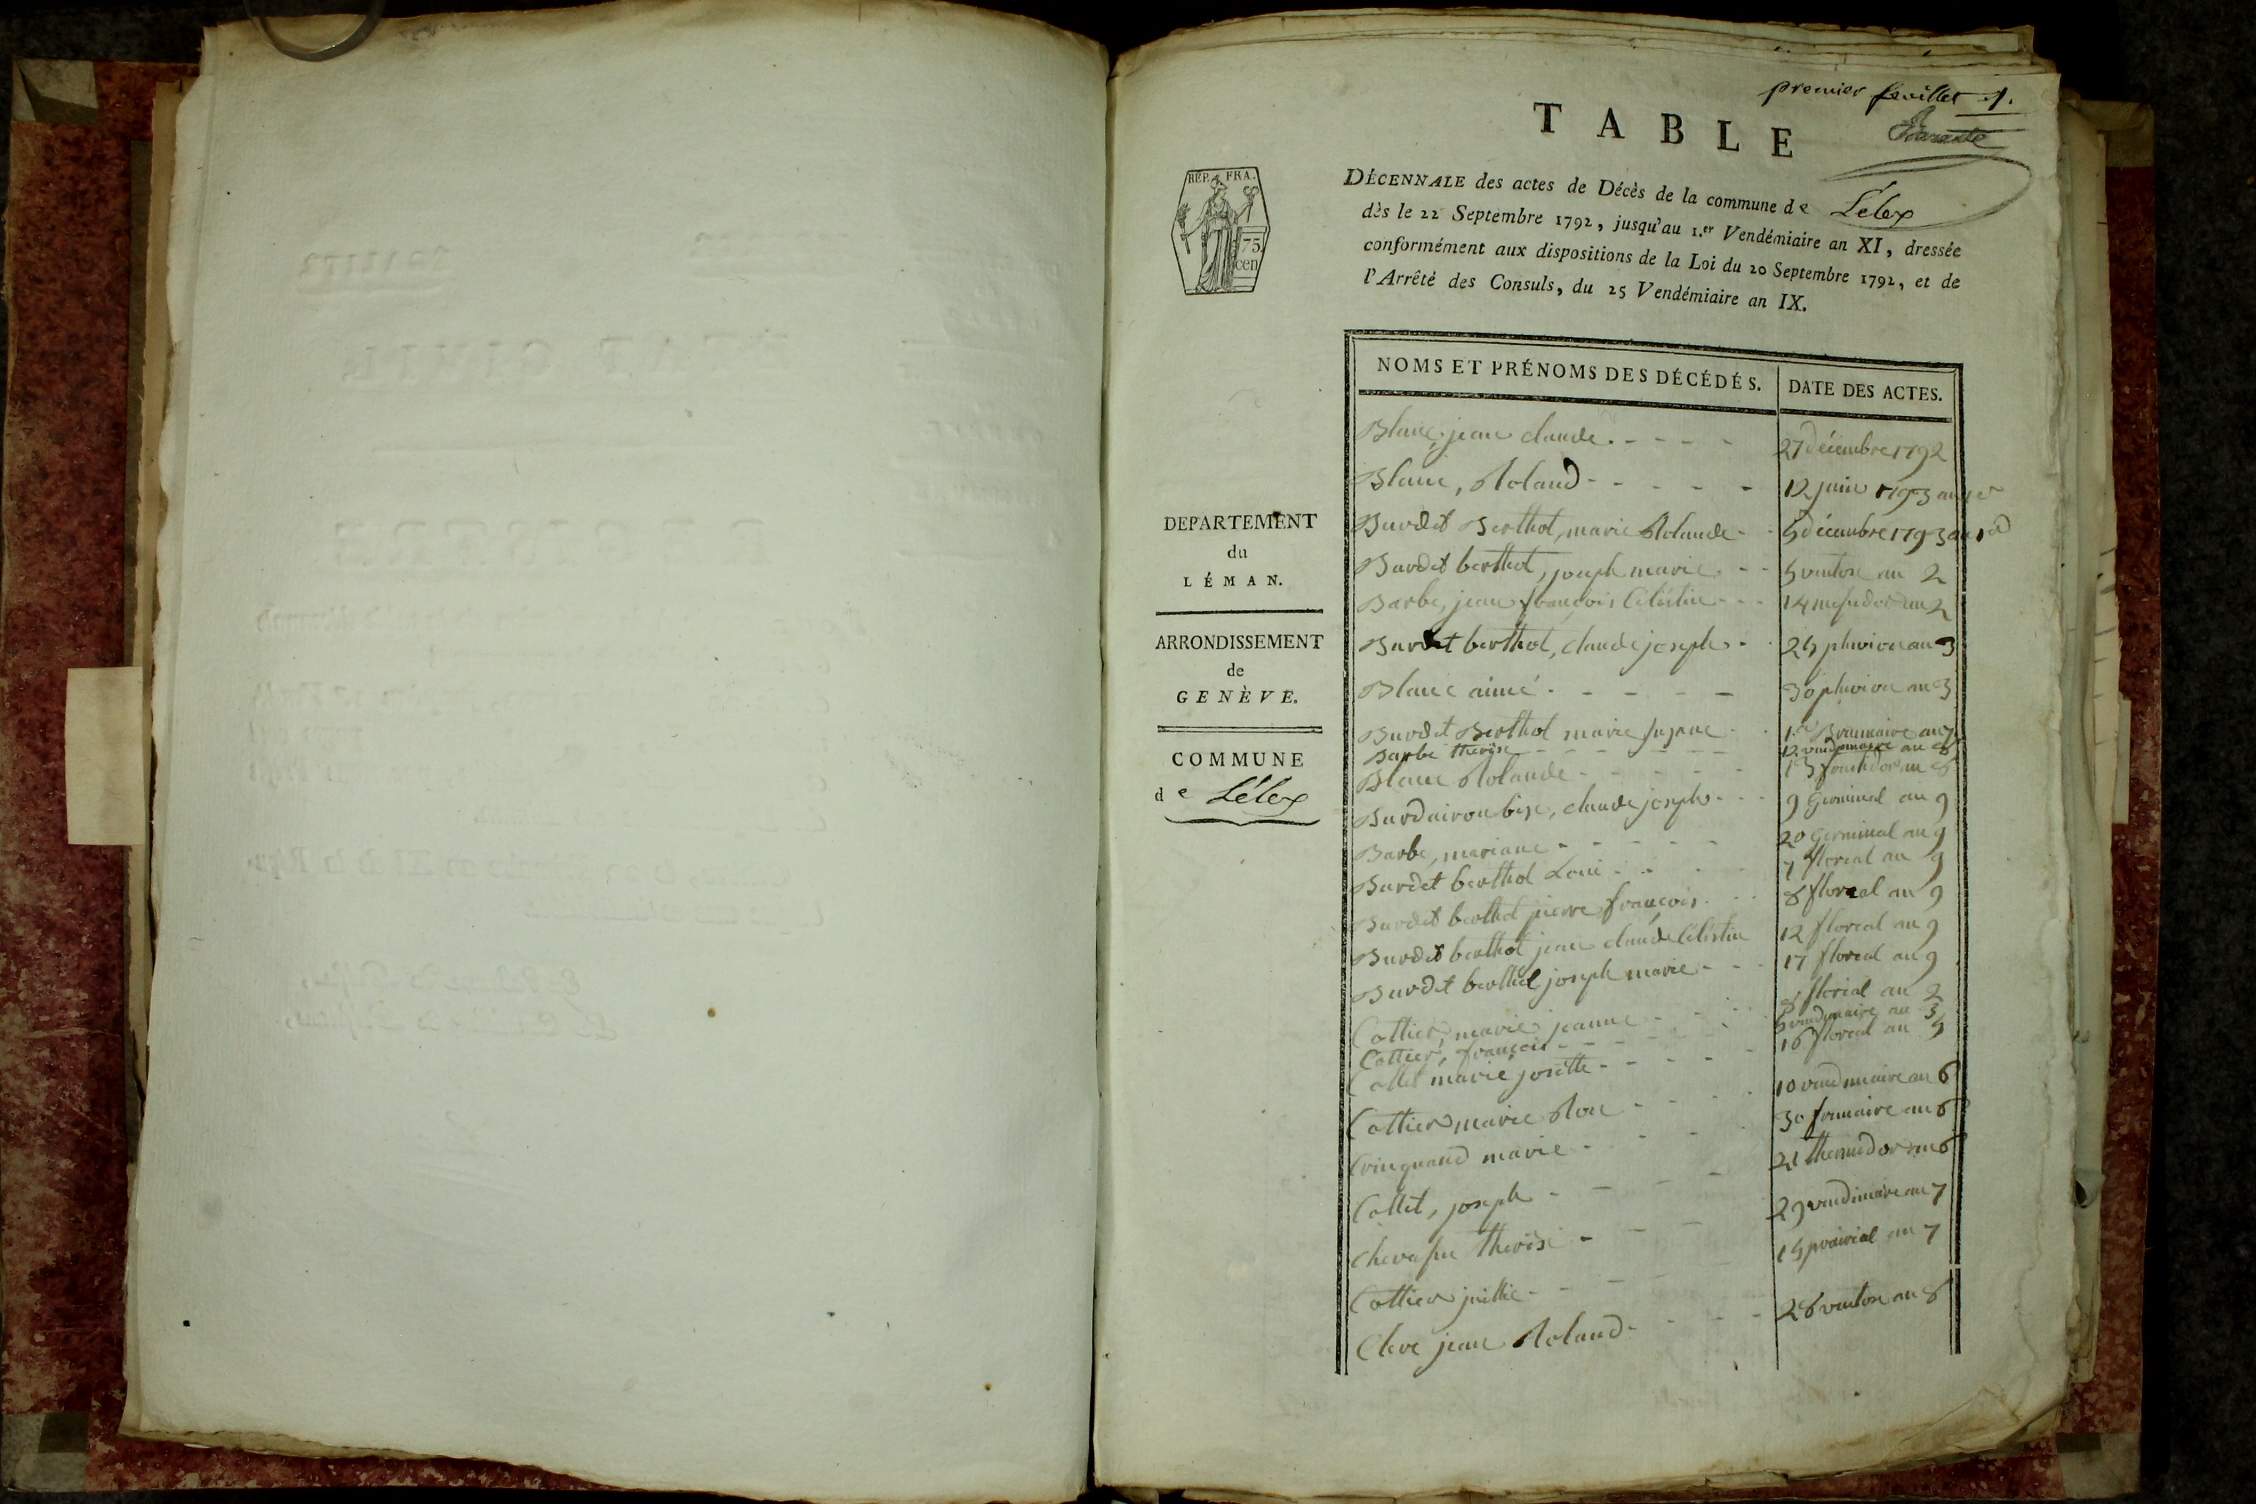 premier feuillet 1.
TABLE
REP. FRA.
75
cen
DÉCENNALE des actes de Décès de la commune de Lélex
dès le 22 Septembre 1792, jusqu'au 1.er Vendémiaire an XI, dressée
conformément aux dispositions de la Loi du 20 Septembre 1792, et de
l'Arrêté des Consuls, du 25 Vendémiaire an IX.
DEPARTEMENT
du
LÉMAN.
ARRONDISSEMENT
de
GENÈVE.
COMMUNE
de Lélex
NOMS ET PRÉNOMS DES DÉCÉDÉS. DATE DES ACTES.
Blanc, jean claude 27 décembre 1792
Blanc, Roland 12 juin 1793 an 1er
Burdet Berthot, marie Rolande 5 décembre 1793
Burdet berthot, joseph marie 5 ventose an 2
Barbe, jean françois Célestin 14 messidor an 2
Burdet berthot, claude joseph 25 pluviose an 3
Blanc aimé 30 pluviose an 3
Burdet Berthot marie Suzane 1er Brumaire an 7
Barbe therese 12 vendemiaire an 8
Blanc Rolande 13 fructidor an 8
Burdairon bize, claude joseph 9 Germinal an 9
Barbe, mariane 20 Germinal an 9
Burdet berthot Loui 7 floreal an 9
Burdet berthot pierre françois 8 floreal an 9
Burdet berthot jean claude Célestin 12 floreal an 9
Burdet berthot joseph marie 17 floreal an 9
Cottier, marie jeanne 8 floreal an 2
Cottier, françois 5 vendemiaire an 3
Collet marie josette 16 floreal an 5
Cottier marie Rose 10 vendemiaire an 6
Crinquand marie 30 frimaire an 6
Collet, joseph 21 thermidor an 6
Chevassu therese 29 vendimiaire an 7
Cottier juillie 15 prairial an 7
Cleve jean Roland 28 ventose an 8